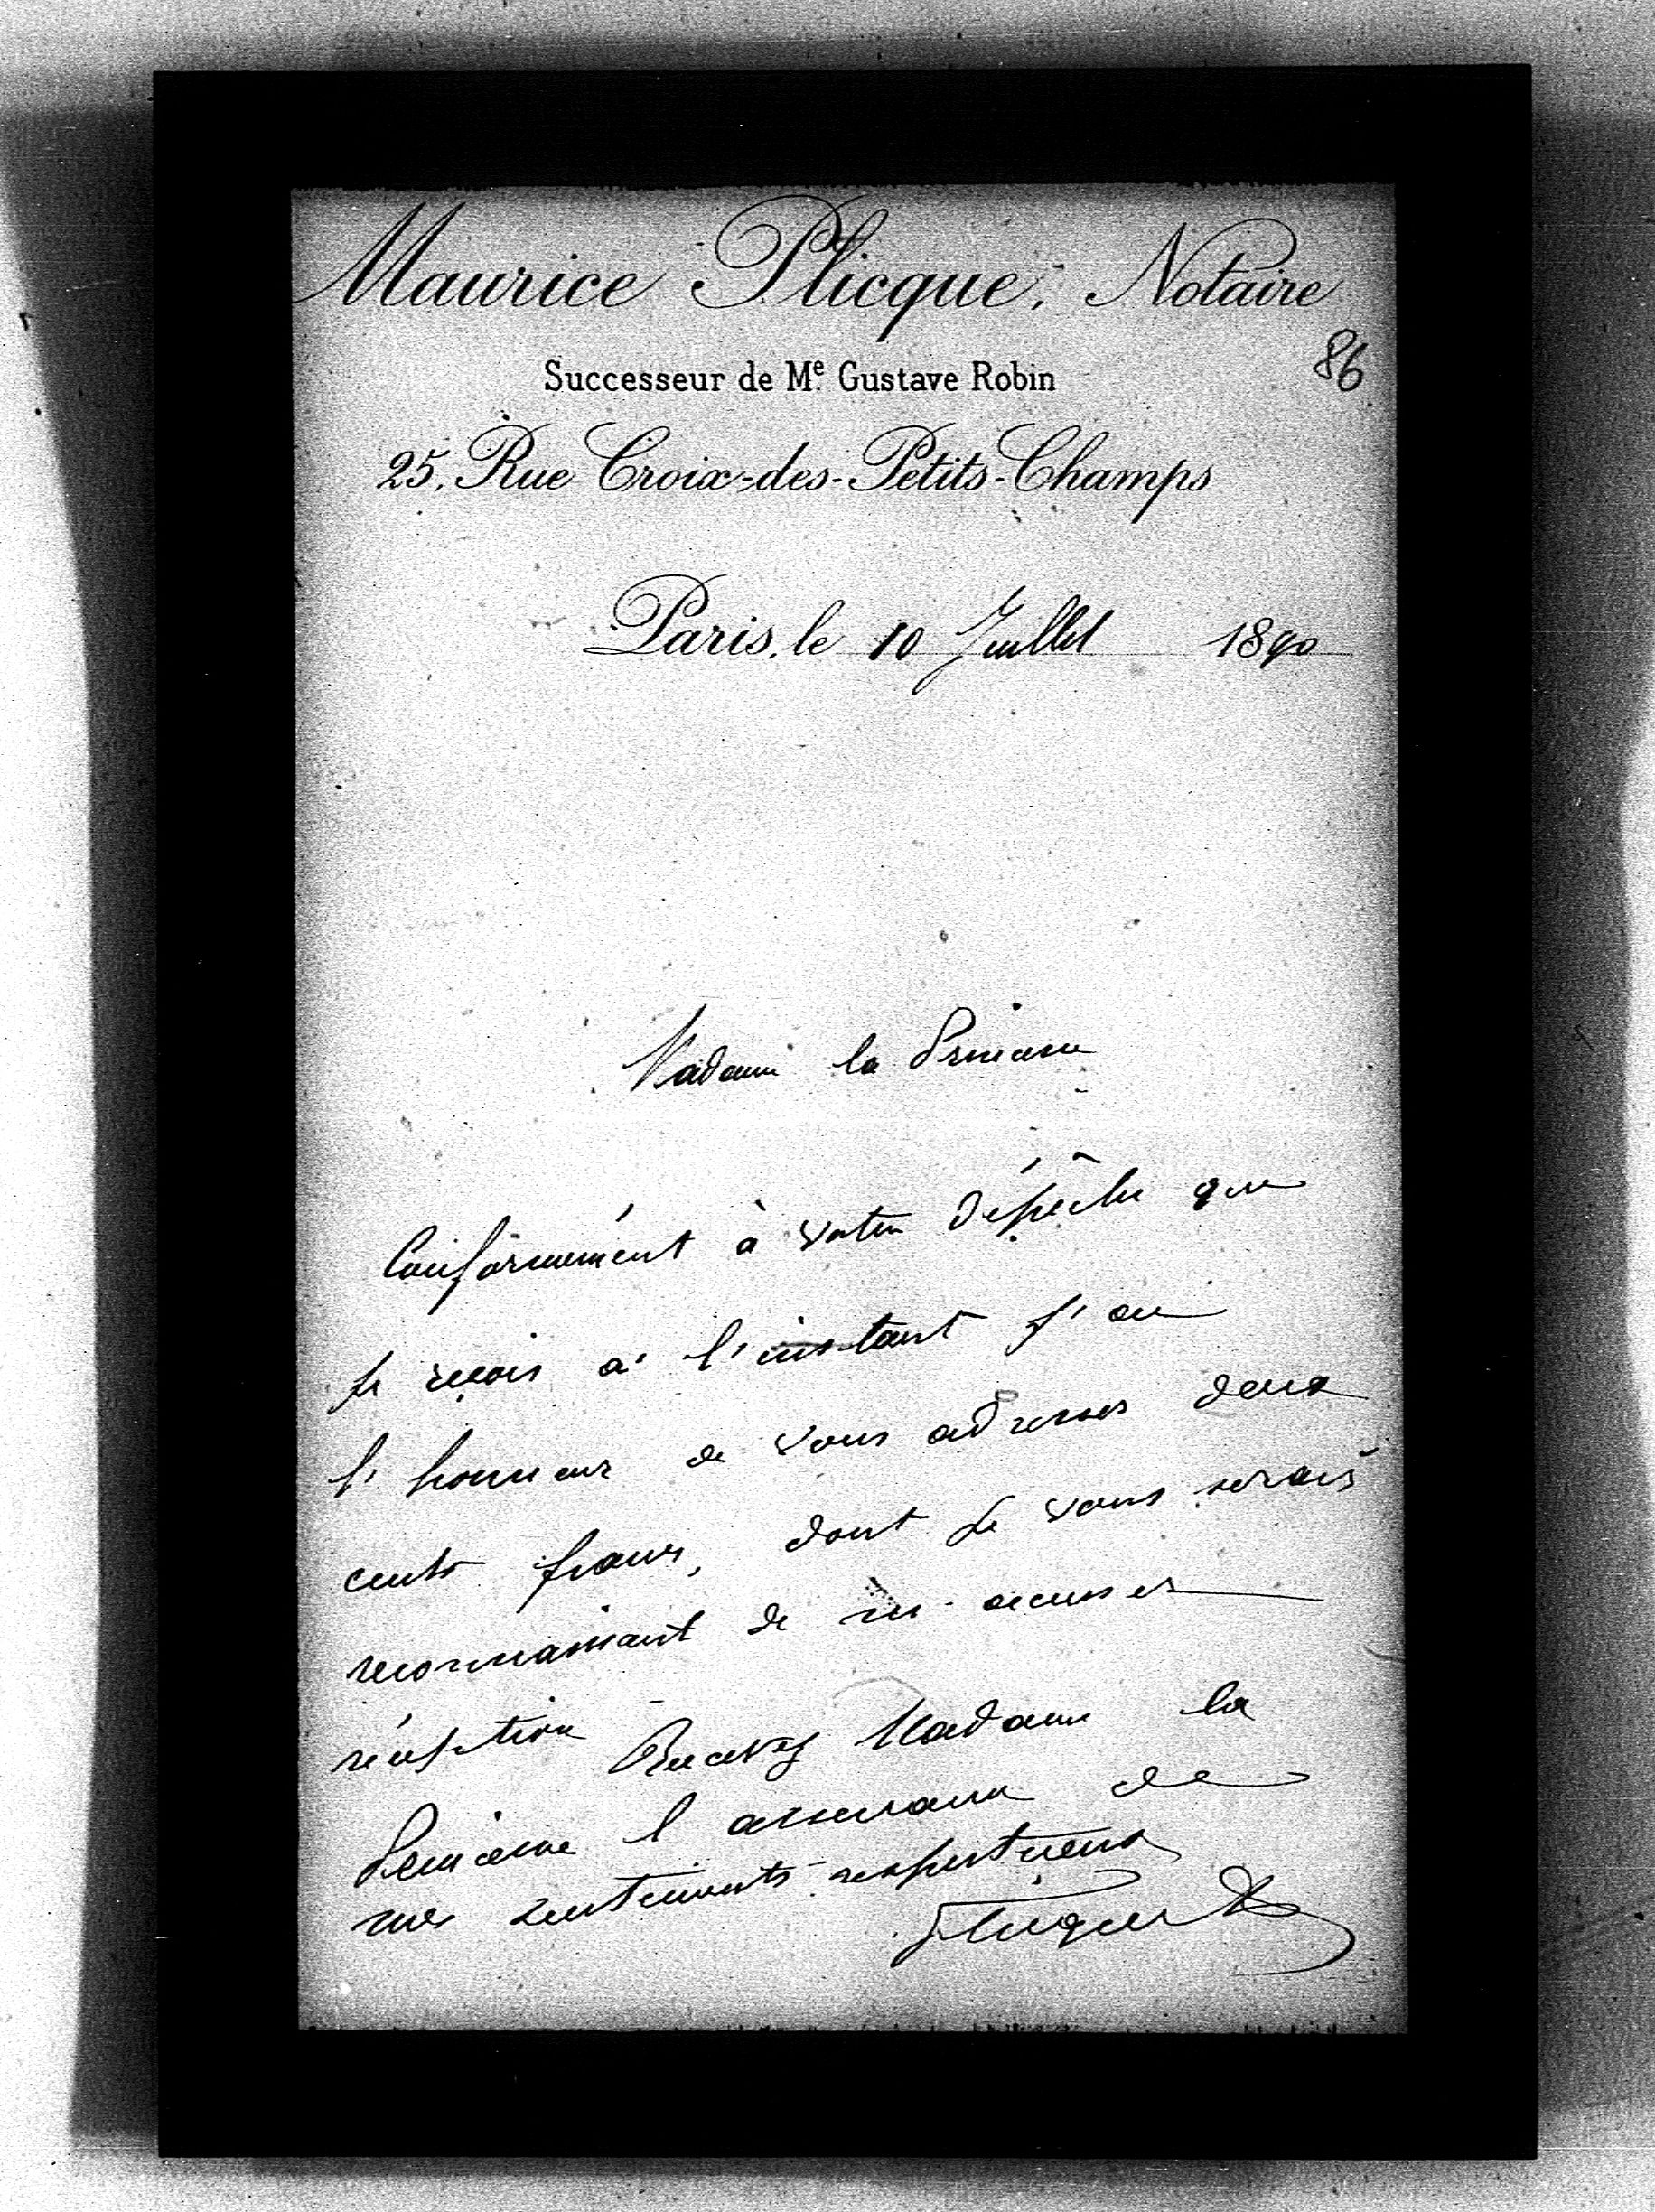 Maurice Plicque, Notaire
86
Successeur de Mᵉ Gustave Robin
25, Rue Croix-des-Petits-Champs
Paris, le 10 Juillet 1890
Madame la Princesse
Conformément à votre dépêche que
je reçois à l'instant j'ai
l'honneur de vous adresser deux
cents francs, dont je vous serais
reconnaissant de m'accuser
réception Recevez Madame la
Princesse l'assurance de
mes sentiments respectueux
Plicque